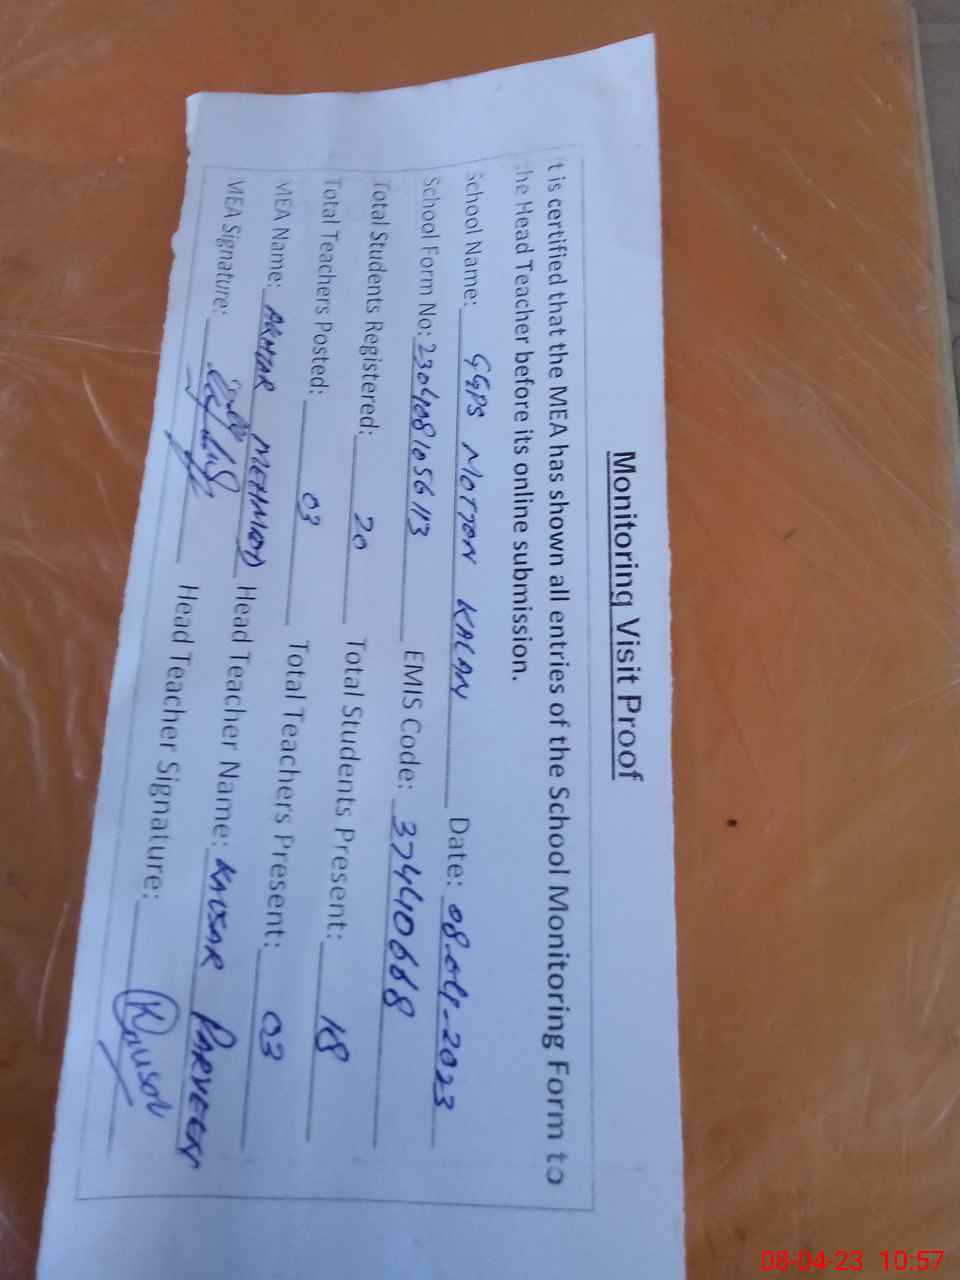 Monitoring Visit Proof
t is certified that the MEA has shown all entries of the School Monitoring Form to
the Head Teacher before its online submission.
School Name: GGPS MOTTON KALAN Date: 08-04-2023
School Form No: 2304081056113 EMIS Code: 37440668
Total Students Registered: 20 Total Students Present: 18
Total Teachers Posted: 03 Total Teachers Present: 03
MEA Name: AKHTAR MEHMOOD Head Teacher Name: KAUSAR PARVEEN
MEA Signature: Head Teacher Signature: Kausar
08-04-23 10:57